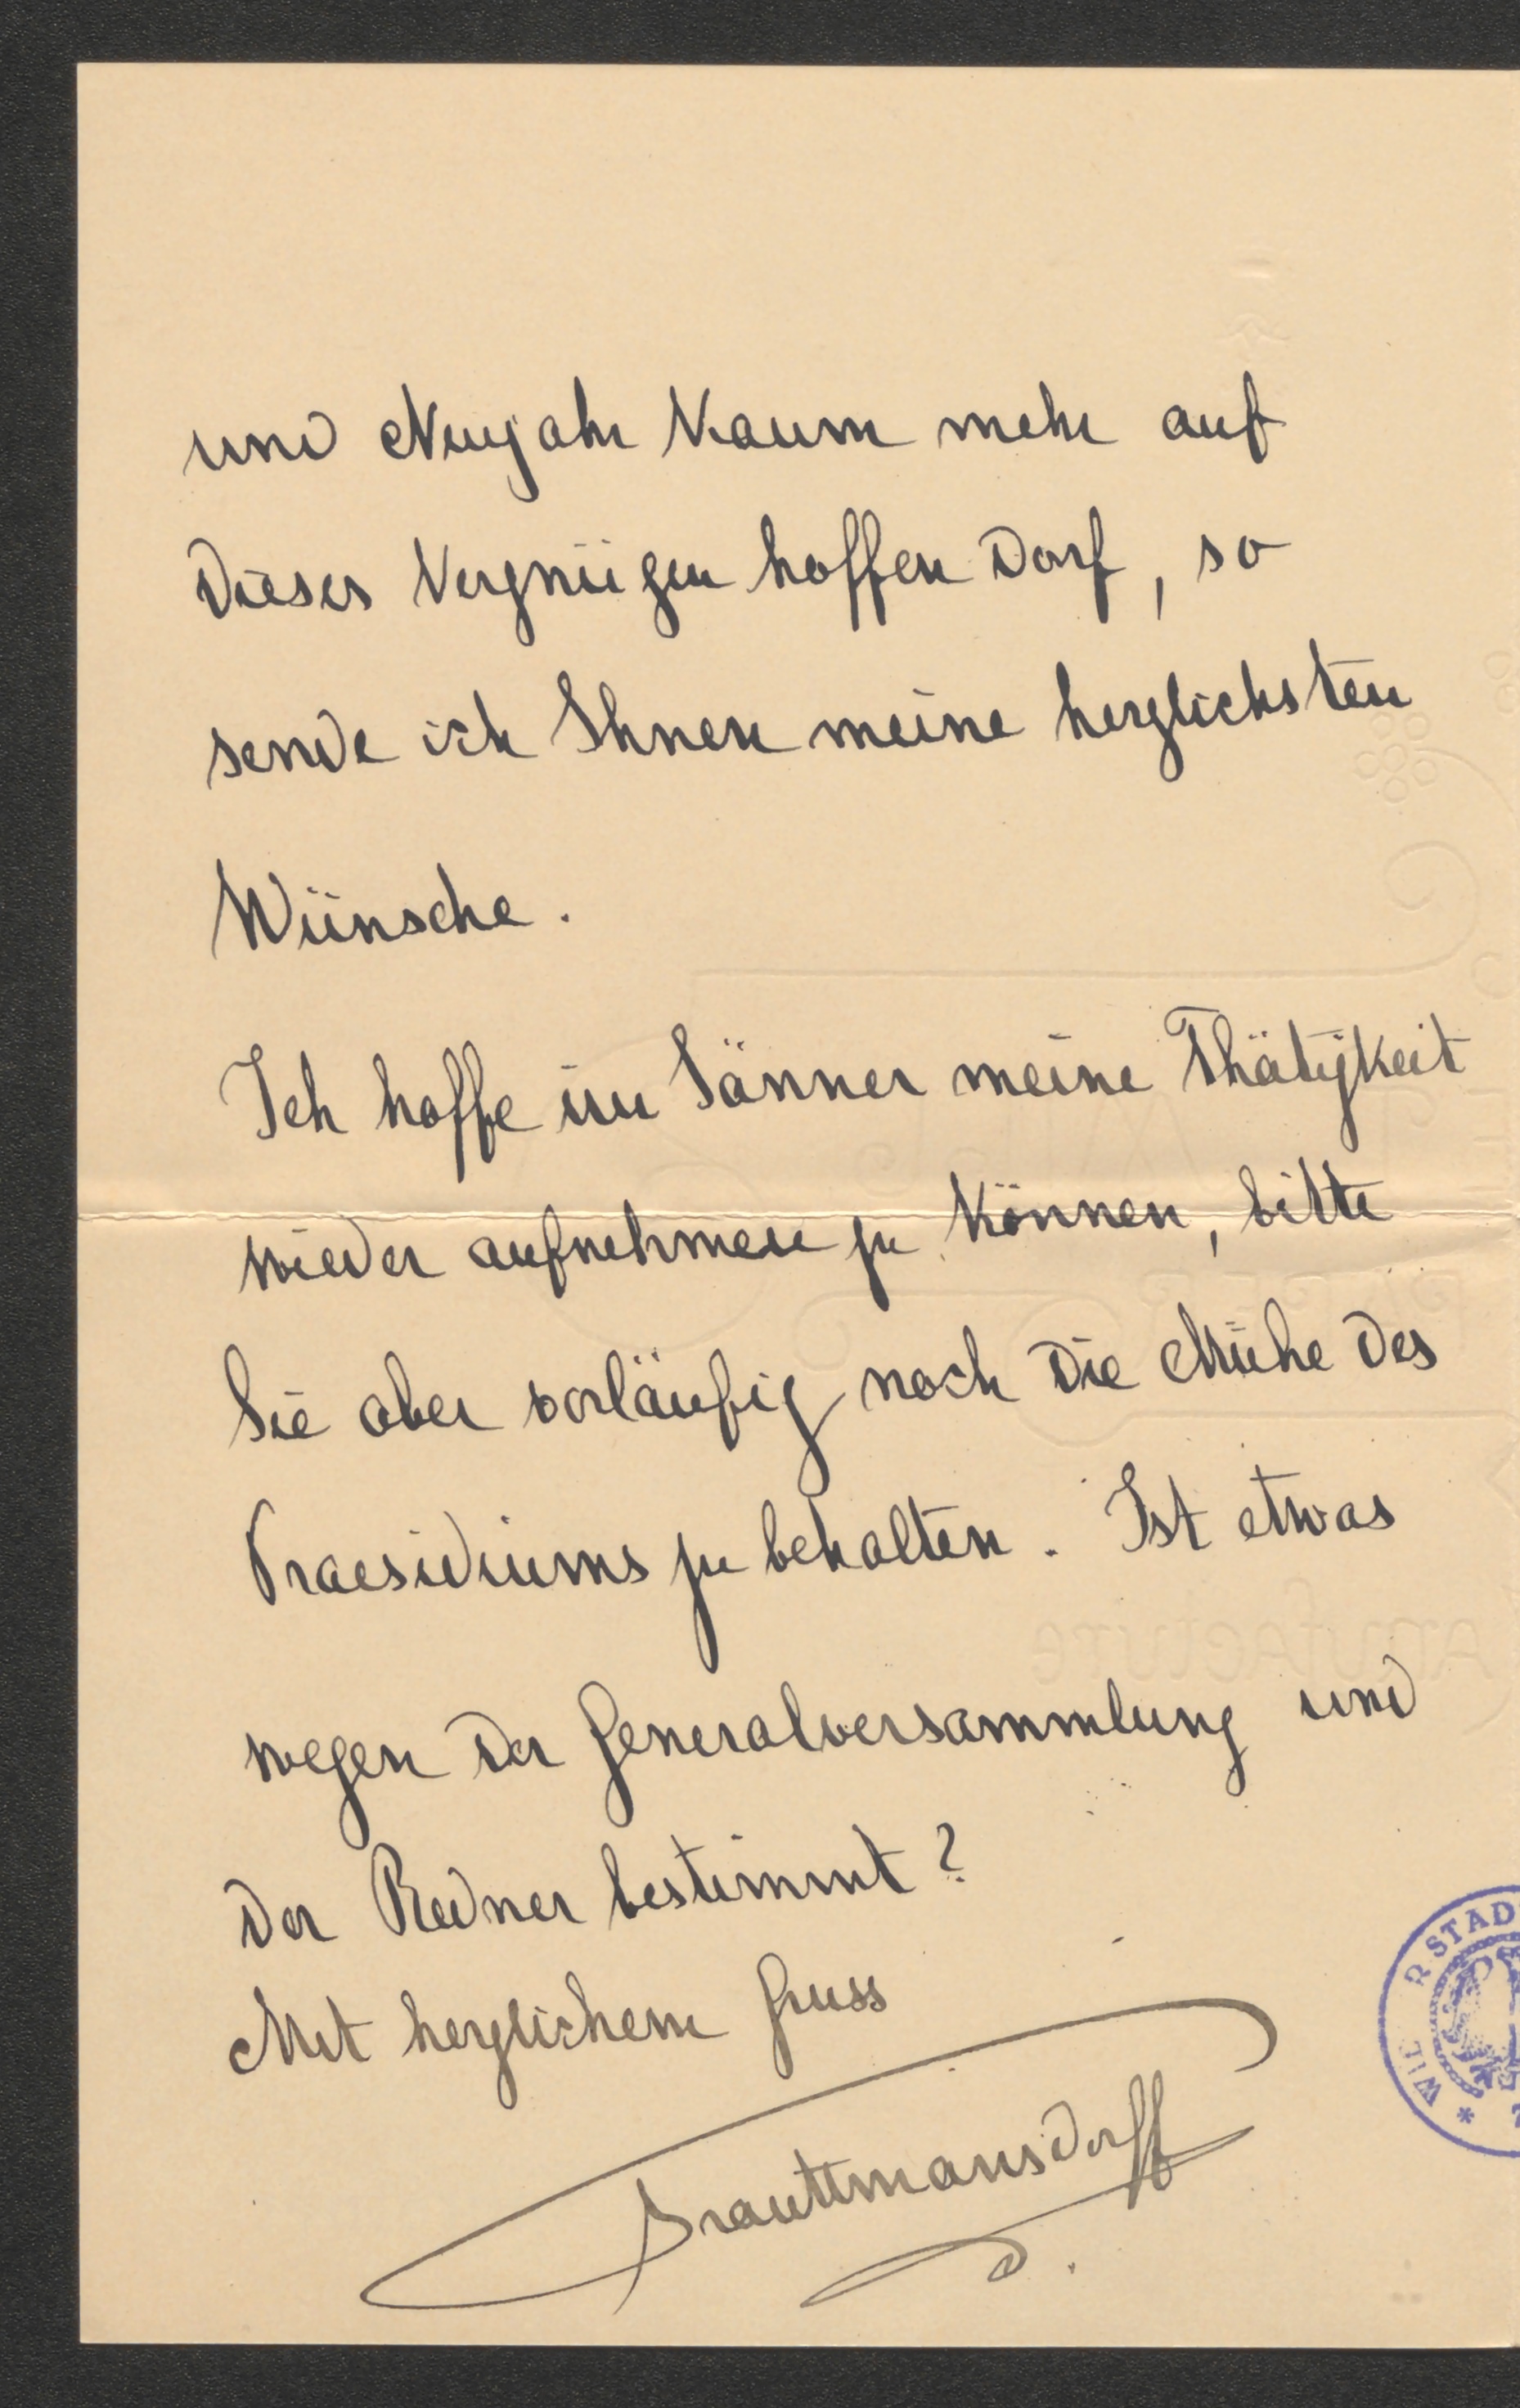 und Neujahr kaum mehr auf
dieses Vergnügen hoffen darf, so
sende ich Ihnen meine herzlichsten
Wünsche.
Ich hoffe im Jänner meine Thätigkeit
wieder aufnehmen zu können, bitte
Sie aber vorläufig noch die Mühe des
Praesidiums zu behalten. Ist etwas
wegen der Generalversammlung und
der Redner bestimmt?
Mit herzlichem Gruss
Trauttmansdorff